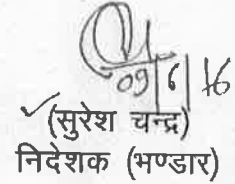 09/6/16
(सुरेश चन्द्र)
निदेशक (भण्डार)